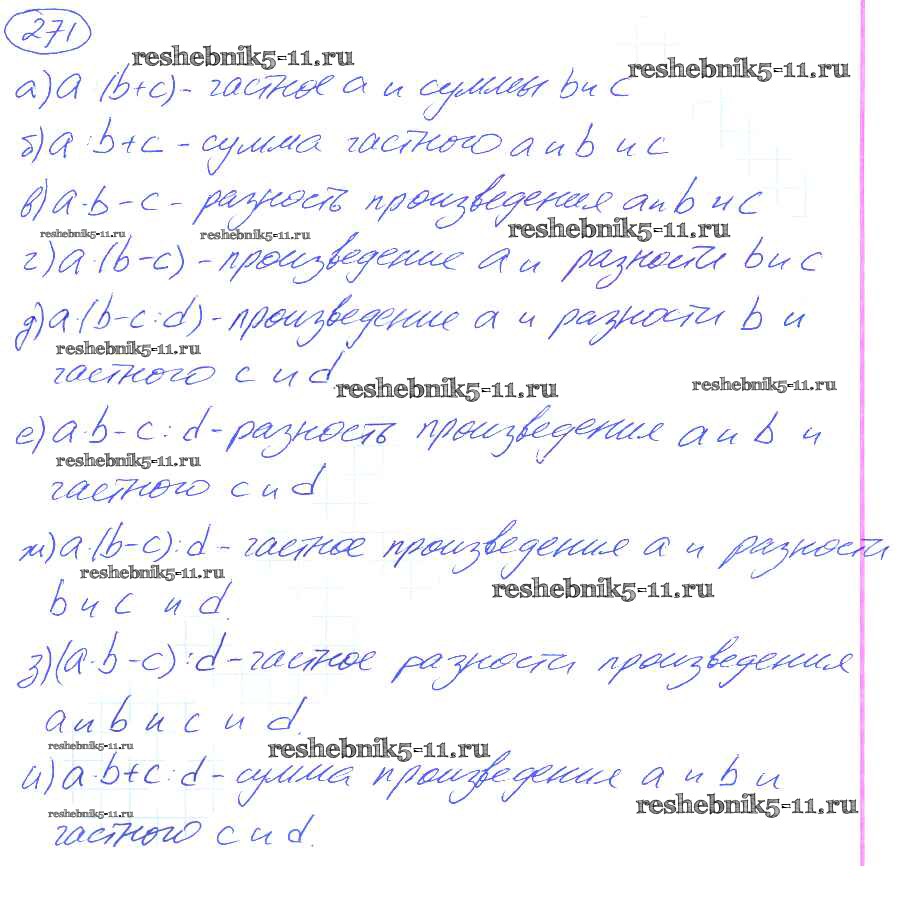 271
reshebnik5-11.ru
reshebnik5-11.ru
а) a (b+c) - частное a и суммы b и c
б) a : b+c - сумма частного a и b и c
в) a·b-c - разность произведения a и b и c
reshebnik5-11.ru
reshebnik5-11.ru
reshebnik5-11.ru
г) a·(b-c) - произведение a и разности b и c
д) a·(b-c:d) - произведение a и разности b и
reshebnik5-11.ru
частного c и d
reshebnik5-11.ru
reshebnik5-11.ru
е) a·b-c:d - разность произведения a и b и
reshebnik5-11.ru
частного c и d
ж) a·(b-c):d - частное произведения a и разности
reshebnik5-11.ru
reshebnik5-11.ru
b и c и d.
з) (a·b-c):d - частное разности произведения
a и b и c и d.
reshebnik5-11.ru
reshebnik5-11.ru
и) a·b+c:d - сумма произведения a и b и
reshebnik5-11.ru
reshebnik5-11.ru
частного c и d.